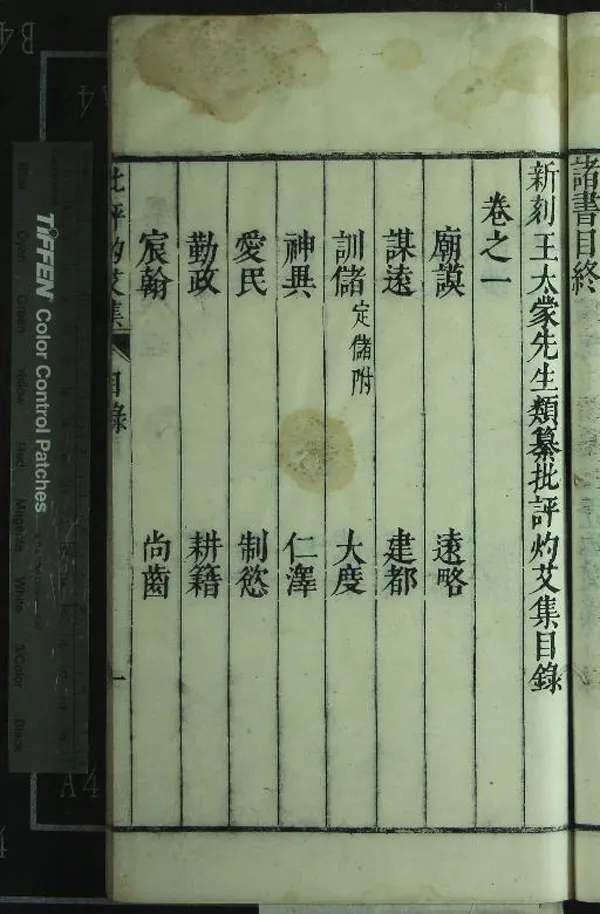 諸書目終
新刻王太蒙先生類纂批評灼艾集目錄
卷之一
廟謨
遠略
謀遠
建都
訓儲 定儲附
大度
神異
仁澤
愛民
制慾
勤政
耕籍
宸翰
尚齒
批評灼艾集
目錄
一
TIFFEN Color Control Patches
Blue
Cyan
Green
Yellow
Red
Magenta
White
3/Color
Black
A4
B4
A4